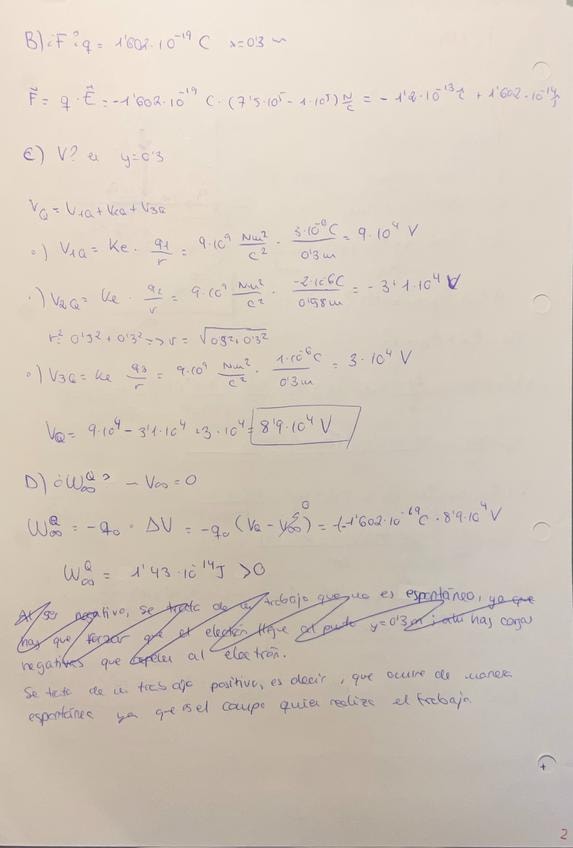 B) ¿F? q = 1'602·10⁻¹⁹ C x=0'3 m
F⃗ = q · E⃗ = -1'602·10⁻¹⁹ C · (7'5·10⁵ - 1·10⁵) N/C = - 1'2·10⁻¹³ i + 1'602·10⁻¹⁴ j
C) V? en y=0'3
V_Q = V_1Q + V_2Q + V_3Q
·) V_1Q = Ke · q1/r = 9·10⁹ Nm²/C² · 3·10⁻⁶C/0'3m = 9·10⁴ V
·) V_2Q = Ke · q2/r = 9·10⁹ Nm²/C² · -2·10⁻⁶C/0'58m = - 3'1·10⁴ V
r²= 0'5² + 0'3² => r = √0'5²+0'3²
·) V_3Q = Ke q3/r = 9·10⁹ Nm²/C² · 1·10⁻⁶C/0'3m = 3·10⁴ V
V_Q = 9·10⁴ - 3'1·10⁴ + 3·10⁴ = 8'9·10⁴ V
D) ¿W_∞^Q? - V∞ = 0
W_∞^Q = -q₀ · ΔV = -q₀ (V_Q - V∞) 0 = -(-1'602·10⁻¹⁹C · 8'9·10⁴V
W_∞^Q = 1'43·10⁻¹⁴J >0
Al ser negativo, se trata de un trabajo que no es espontáneo, ya que
hay que forzar que el electrón llegue al punto y=0'3m; hay cargas
negativas que repelen al electrón.
Se trata de un trabajo positivo, es decir, que ocurre de manera
espontánea ya que es el campo quien realiza el trabajo
+
2